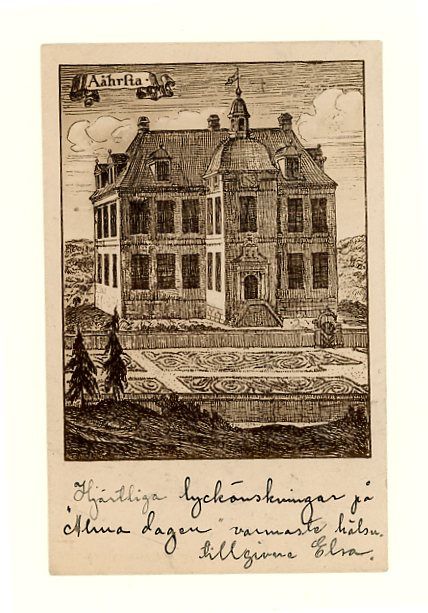 Aåhrsta.
Hjärtliga lyckönskningar på
"Alma dagen" varmaste hälsn.
tillgivne Elsa.